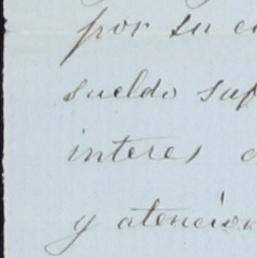 por su
sueldo
interes
y atencion